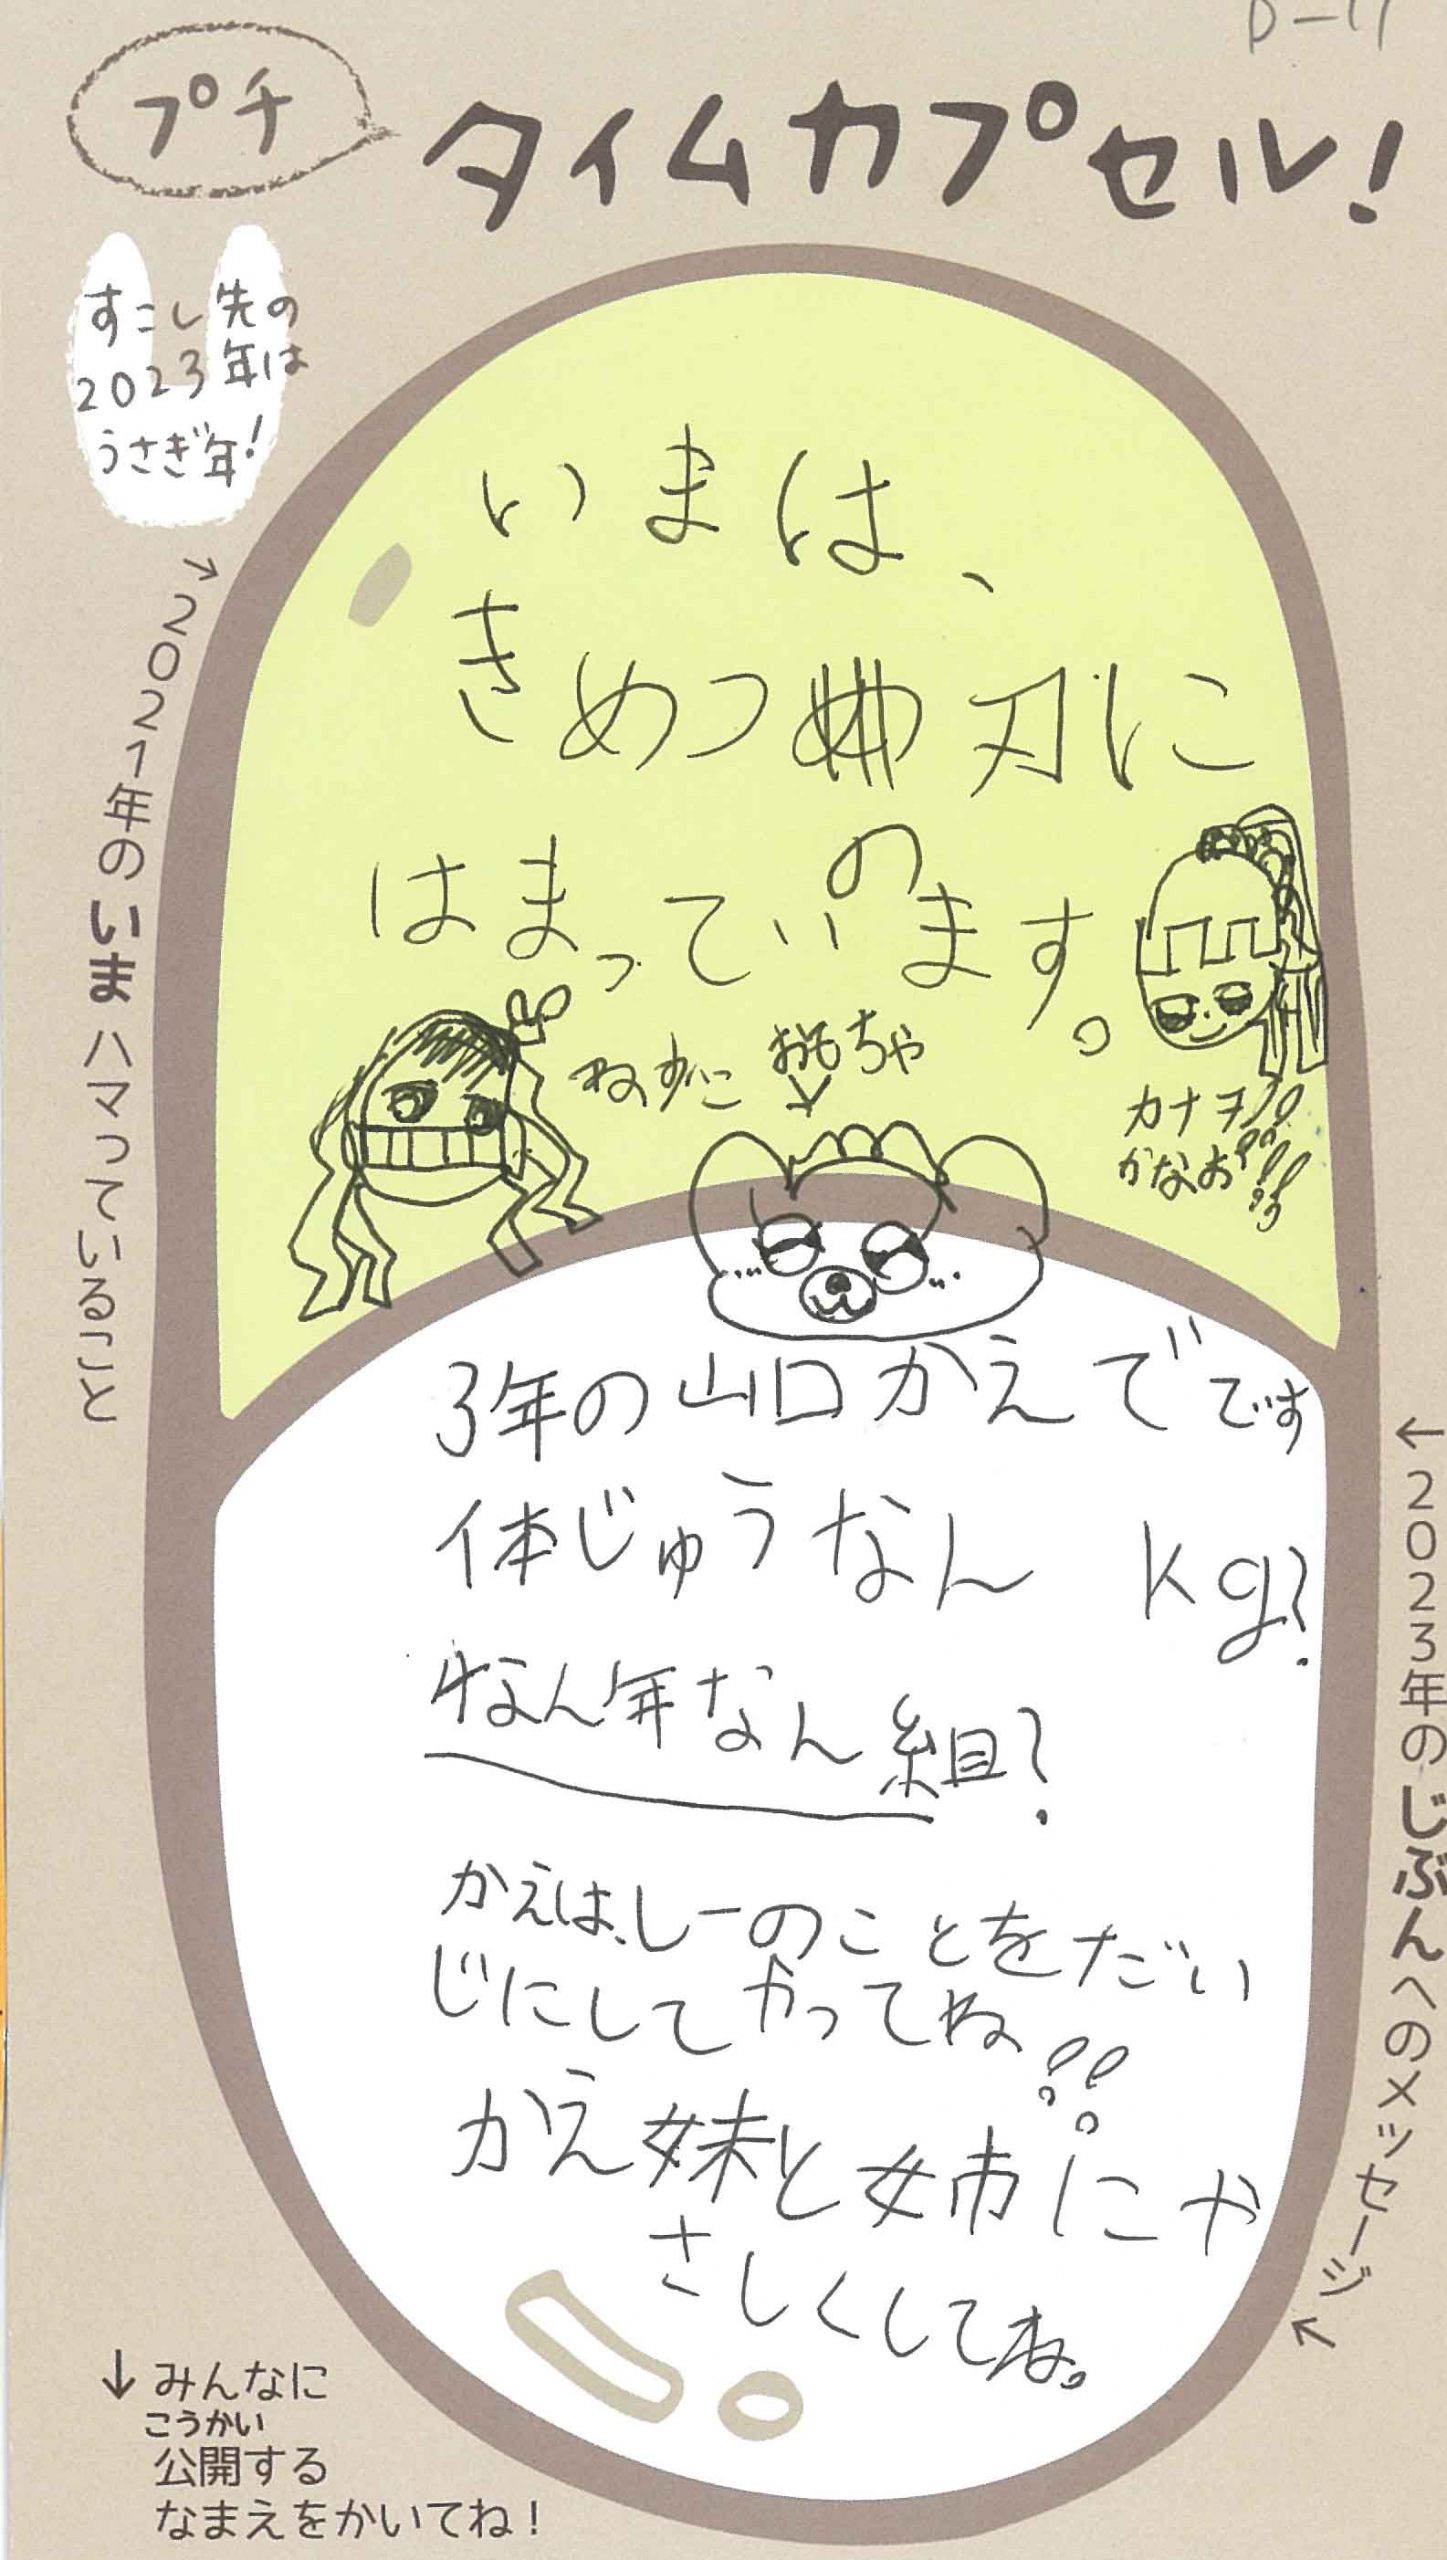 D-17
プチ
タイムカプセル！
すこし先の
2023年は
うさぎ年！
→2021年のいまハマっていること
いまは、
きめつの刃に
はまっています。
ねずこ
おもちゃ
カナヲ!!
かなお!!!
3年の山口かえでです
体じゅうなん kg?
なん年なん組?
かえは、しーのことをだい
じにしてやってね!!
かえ妹と姉にや
さしくしてね。
←2023年のじぶんへのメッセージ
↓みんなに
こうかい
公開する
なまえをかいてね！